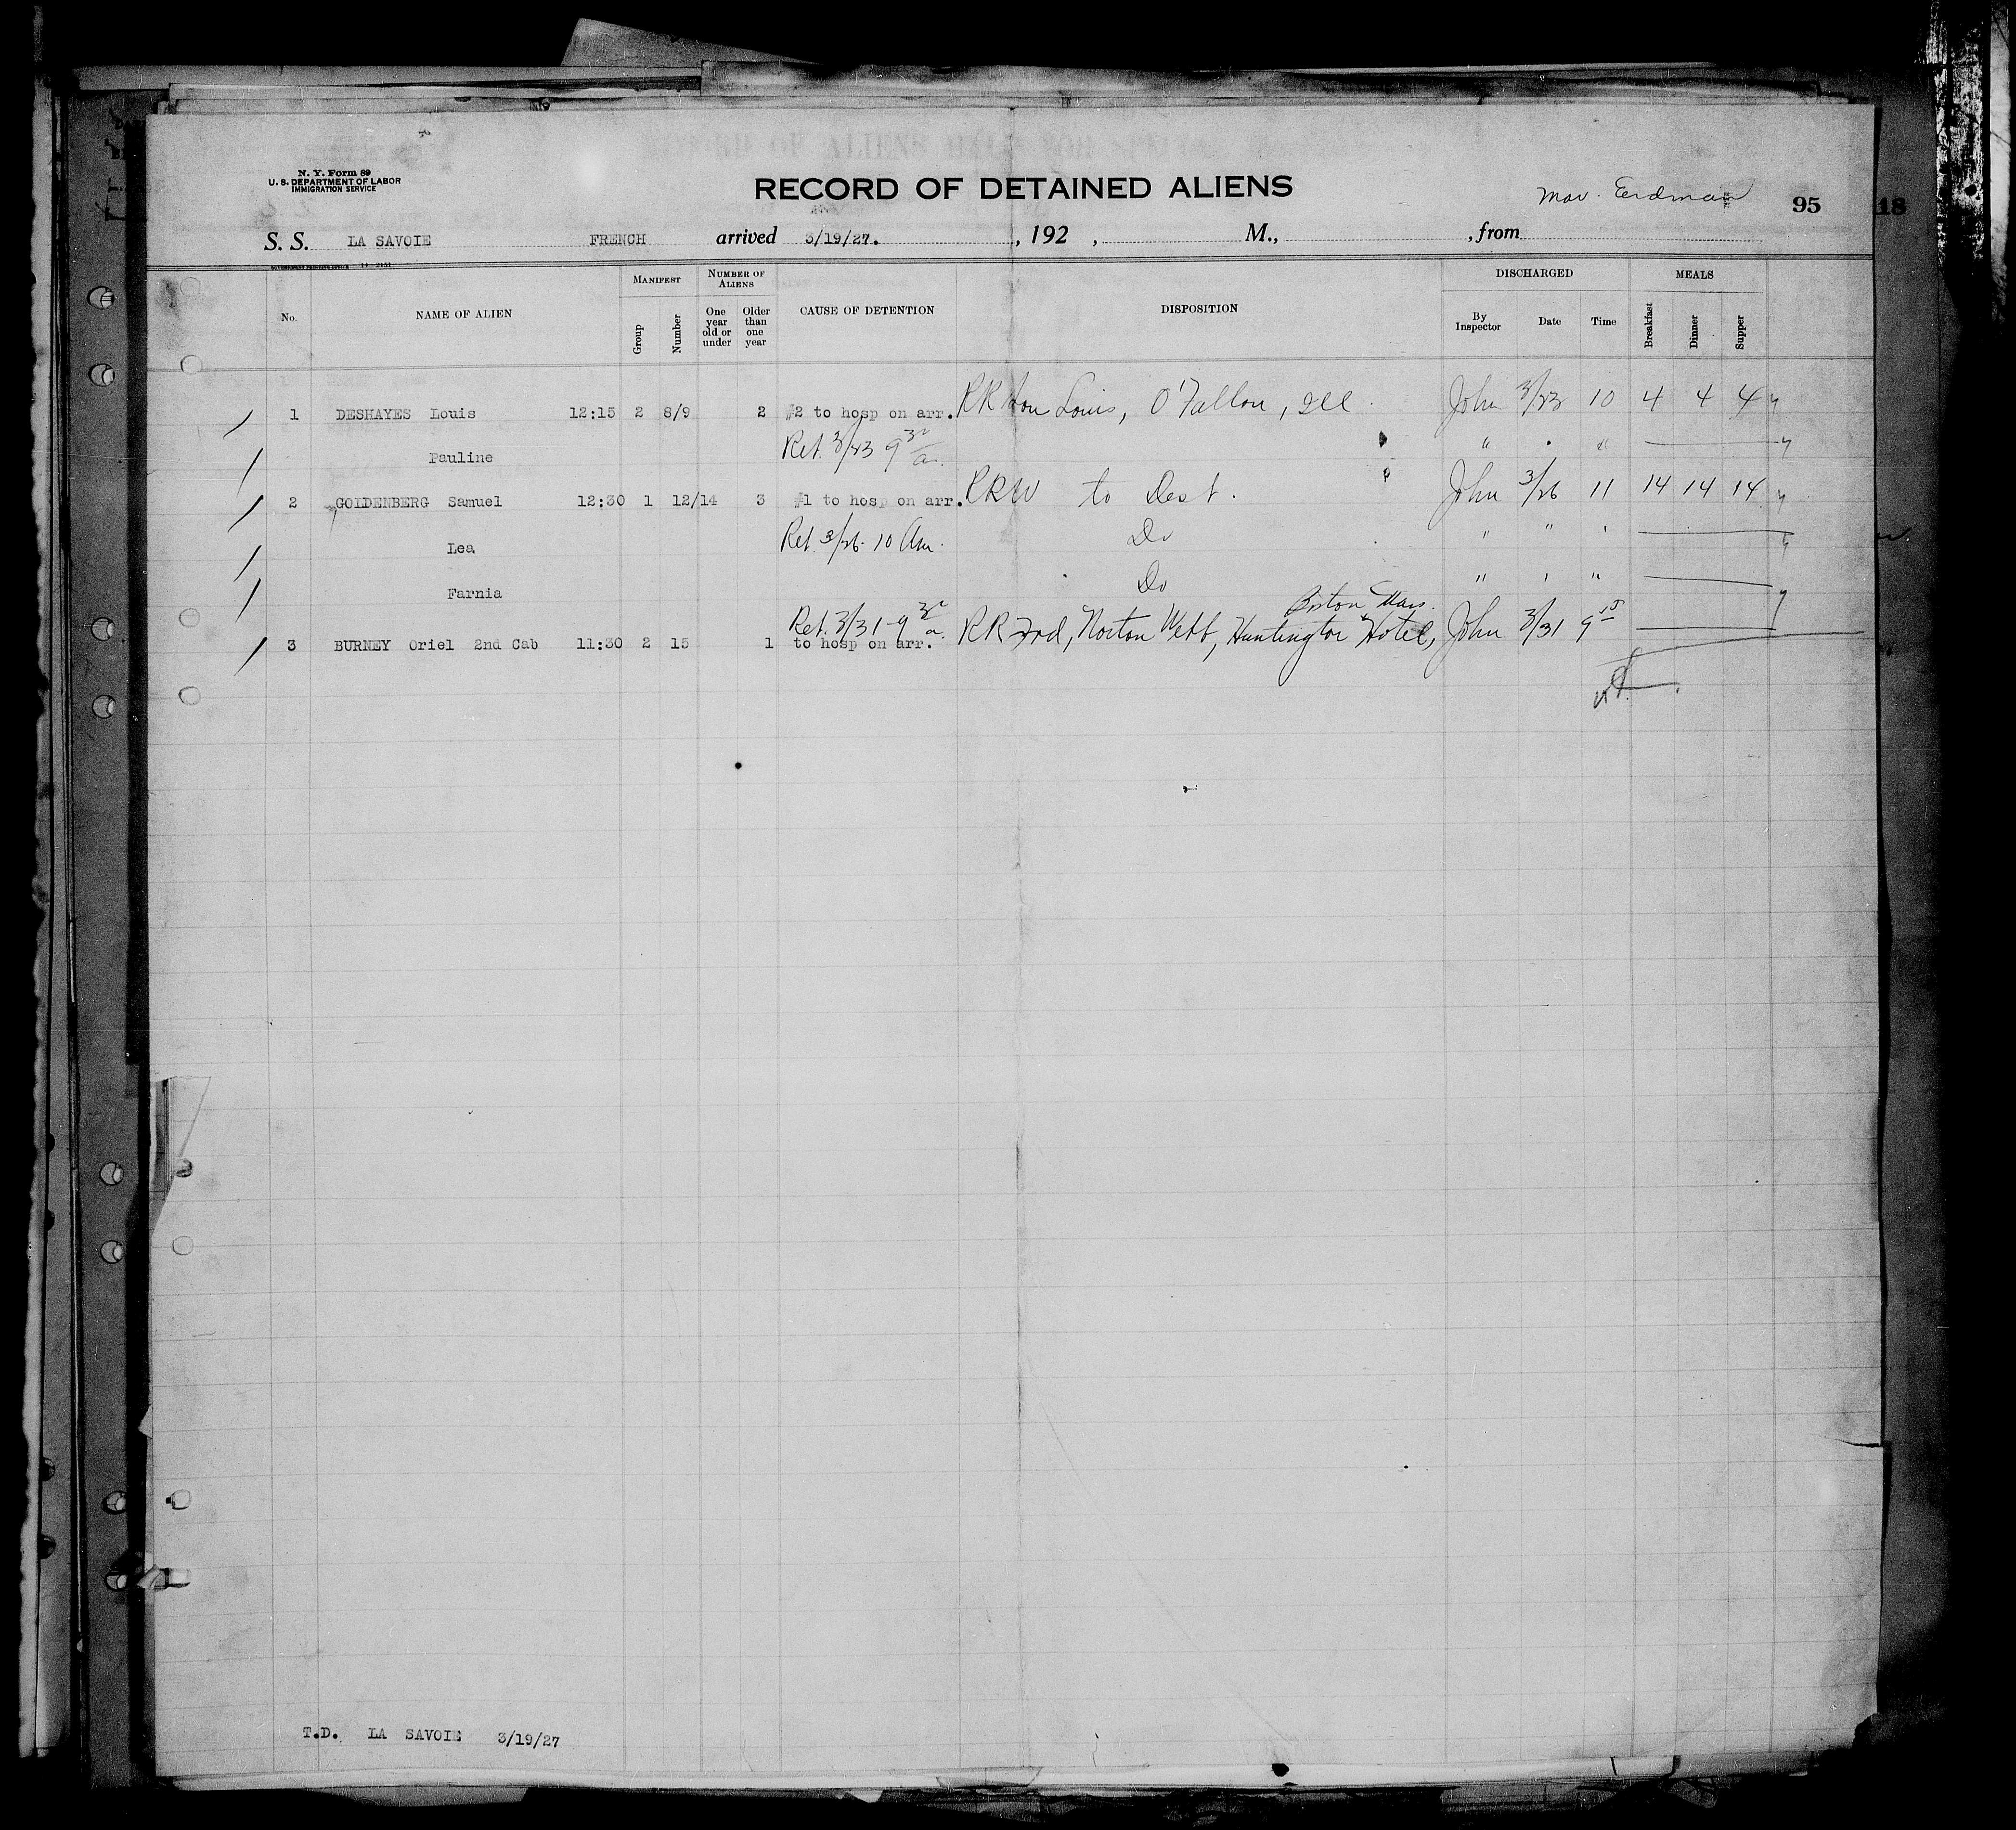 N. Y. Form 89
U. S. DEPARTMENT OF LABOR
IMMIGRATION SERVICE
RECORD OF DETAINED ALIENS
Erdman
95
18
S. S. LA SAVOIE FRENCH arrived 3/19/27. , 192 , M., , from
GOVERNMENT PRINTING OFFICE
MANIFEST NUMBER OF ALIENS DISCHARGED MEALS
No. NAME OF ALIEN Group Number One year old or under Older than one year CAUSE OF DETENTION DISPOSITION By Inspector Date Time Breakfast Dinner Supper
1 DESHAYES Louis 12:15 2 8/9 2 #2 to hosp on arr. RR Son Louis, O'Fallon, Ill. John 3/23 10 4 4 4
Pauline Ret. 3/23 9 30 a. " "
2 GOLDENBERG Samuel 12:30 1 12/14 3 #1 to hosp on arr. RRW to Dest. John 3/26 11 14 14 14
Lea Ret. 3/26 10 Am. Do " " '
Farnia Do " ' "
Ret. 3/31 - 9 30 a. Boston Mass.
3 BURNEY Oriel 2nd Cab 11:30 2 15 1 to hosp on arr. RR Frd, Norton Webb, Huntington Hotel, John 3/31 9 15
T.D. LA SAVOIE 3/19/27